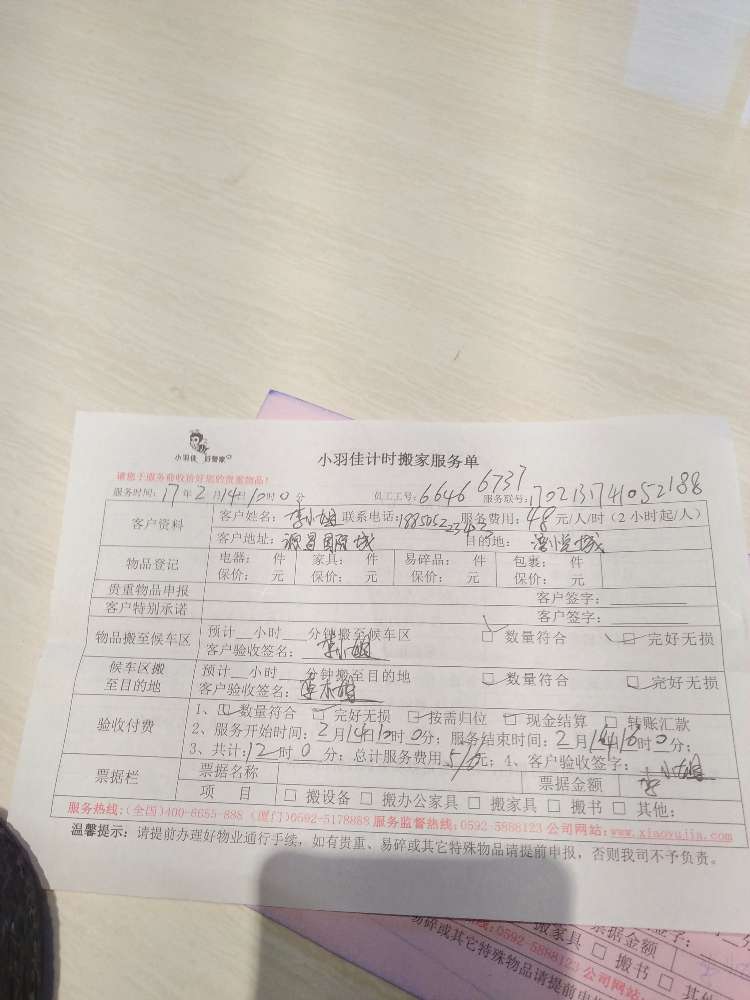 小羽佳 好管家
小羽佳计时搬家服务单
请您于服务前收拾好您的贵重物品!
服务时间: 17年2月14日10时0分 员工工号: 6646 6737 服务联号: 1702131741052188
客户资料 客户姓名: 李小姐 联系电话: 服务费用: 48元/人/时 (2小时起/人)
客户地址: 源昌国际城 目的地:
物品登记 电器: 件 家具: 件 易碎品: 件 包裹: 件
保价: 元 保价: 元 保价: 元 保价: 元
贵重物品申报 客户签字:
客户特别承诺 客户签字:
物品搬至候车区 预计__小时__分钟搬至候车区 □ 数量符合 □ 完好无损
客户验收签名: 李小姐
候车区搬至目的地 预计__小时__分钟搬至目的地 □ 数量符合 □ 完好无损
客户验收签名: 李小姐
验收付费 1、□ 数量符合 □ 完好无损 □ 按需归位 □ 现金结算 □ 转账汇款
2、服务开始时间: 2月14日10时0分; 服务结束时间: 2月14日16时0分;
3、共计: 12时0分; 总计服务费用 576元; 4、客户验收签字: 李小姐
票据栏 票据名称 票据金额
项 目 □ 搬设备 □ 搬办公家具 □ 搬家具 □ 搬书 □ 其他:
服务热线:(全国)400-8655-888 (厦门)0592-5178888 服务监督热线:0592-5888123 公司网站:www.xiaoyujia.com
温馨提示: 请提前办理好物业通行手续, 如有贵重、易碎或其它特殊物品请提前申报, 否则我司不予负责。
票据金额
搬家具 □ 搬书 □ 其
0592-5888123 公司网站
易碎或其它特殊物品请提前申